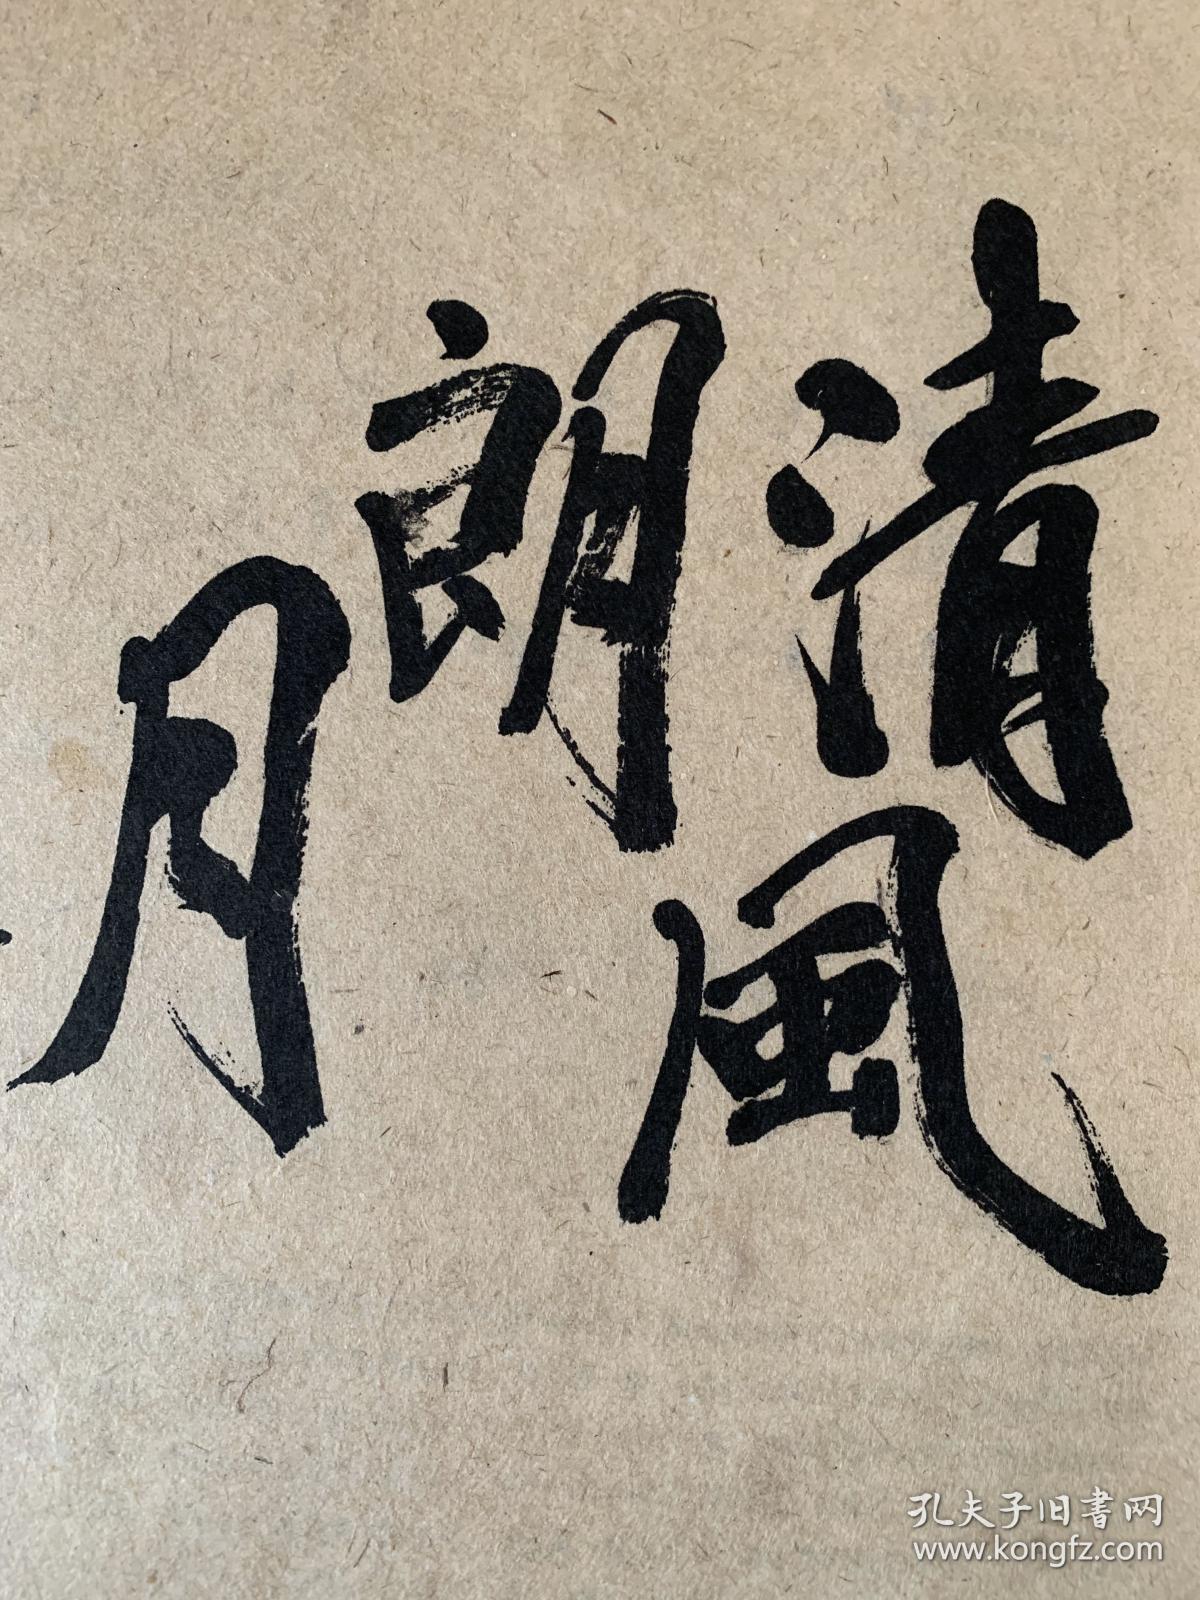 清風
朗月
孔夫子旧書网
www.kongfz.com